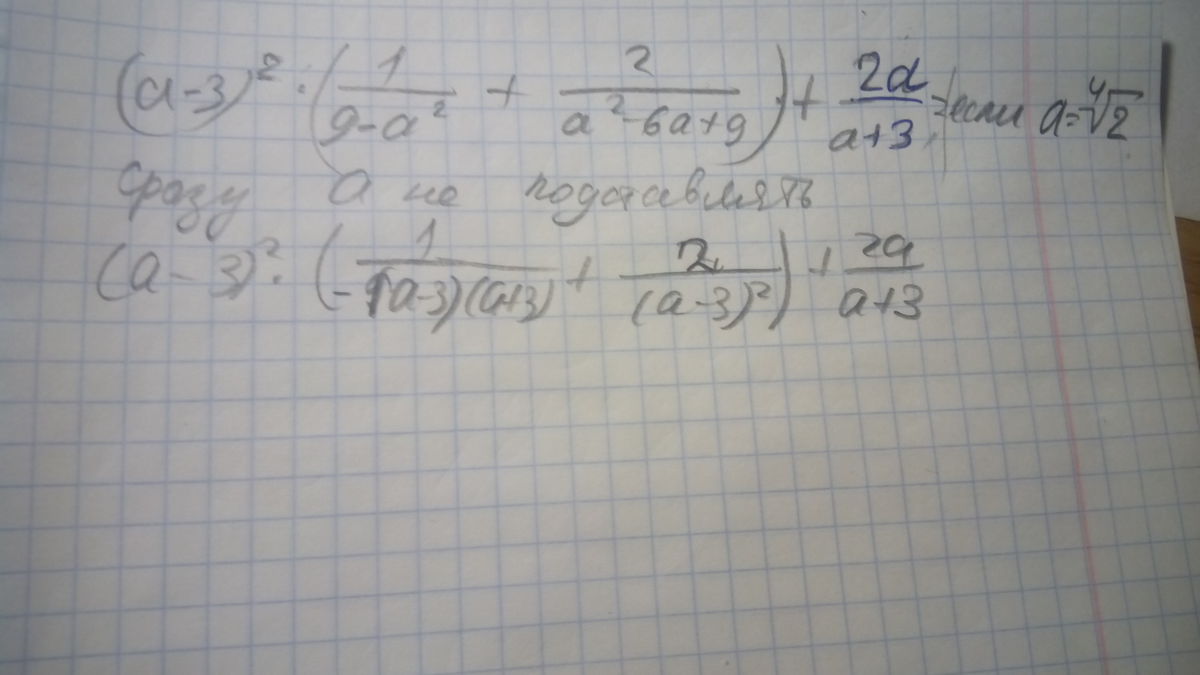 (a-3)² · (1/(9-a²) + 2/(a²-6a+9)) + 2a/(a+3) = если a=⁴√2
сразу a не подставлять
(a-3)² · (1/(-(a-3)(a+3)) + 2/(a-3)²) + 2a/(a+3)